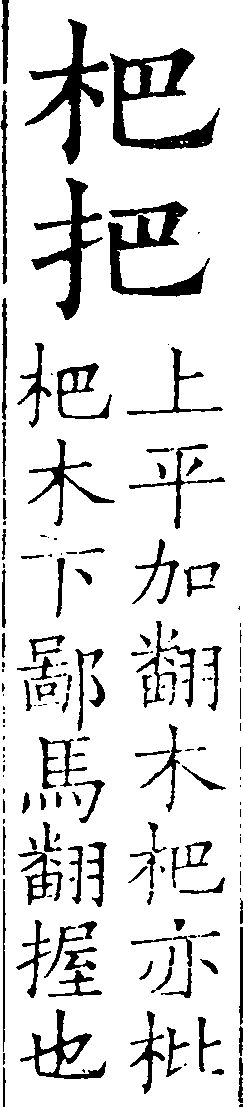 杷把
上平加翻木杷亦枇
杷木下鄙馬翻握也